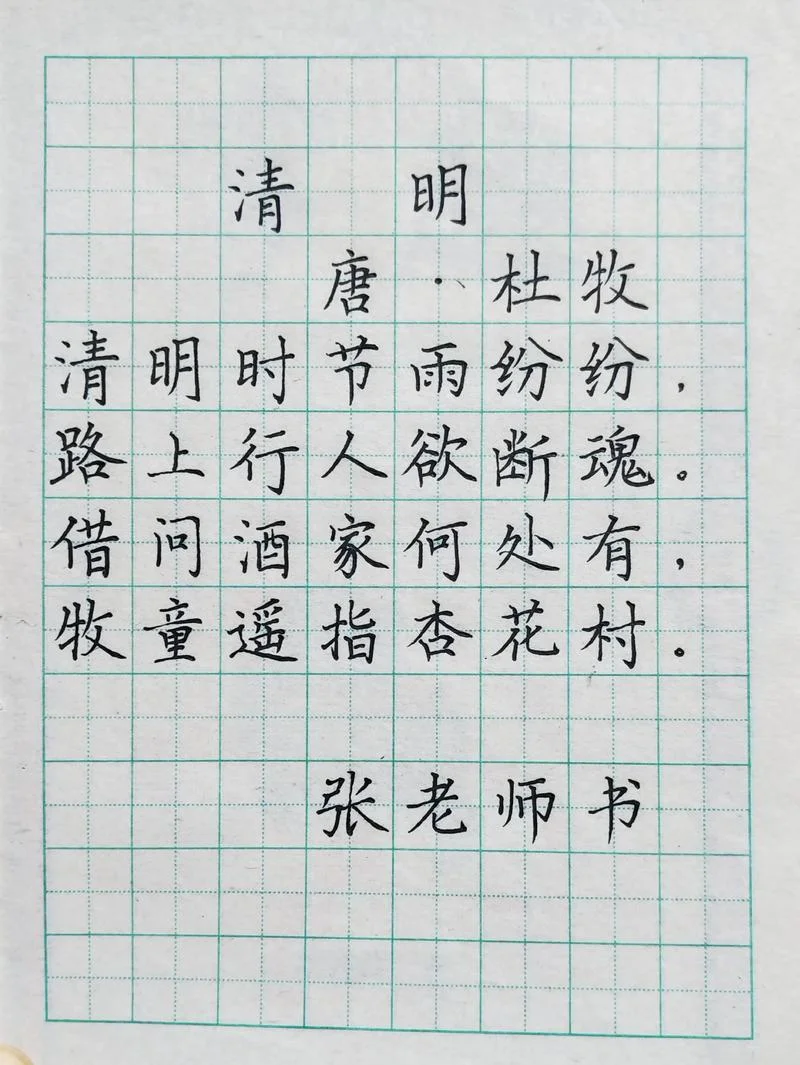 清 明
唐·杜牧
清明时节雨纷纷，
路上行人欲断魂。
借问酒家何处有，
牧童遥指杏花村。
张老师书